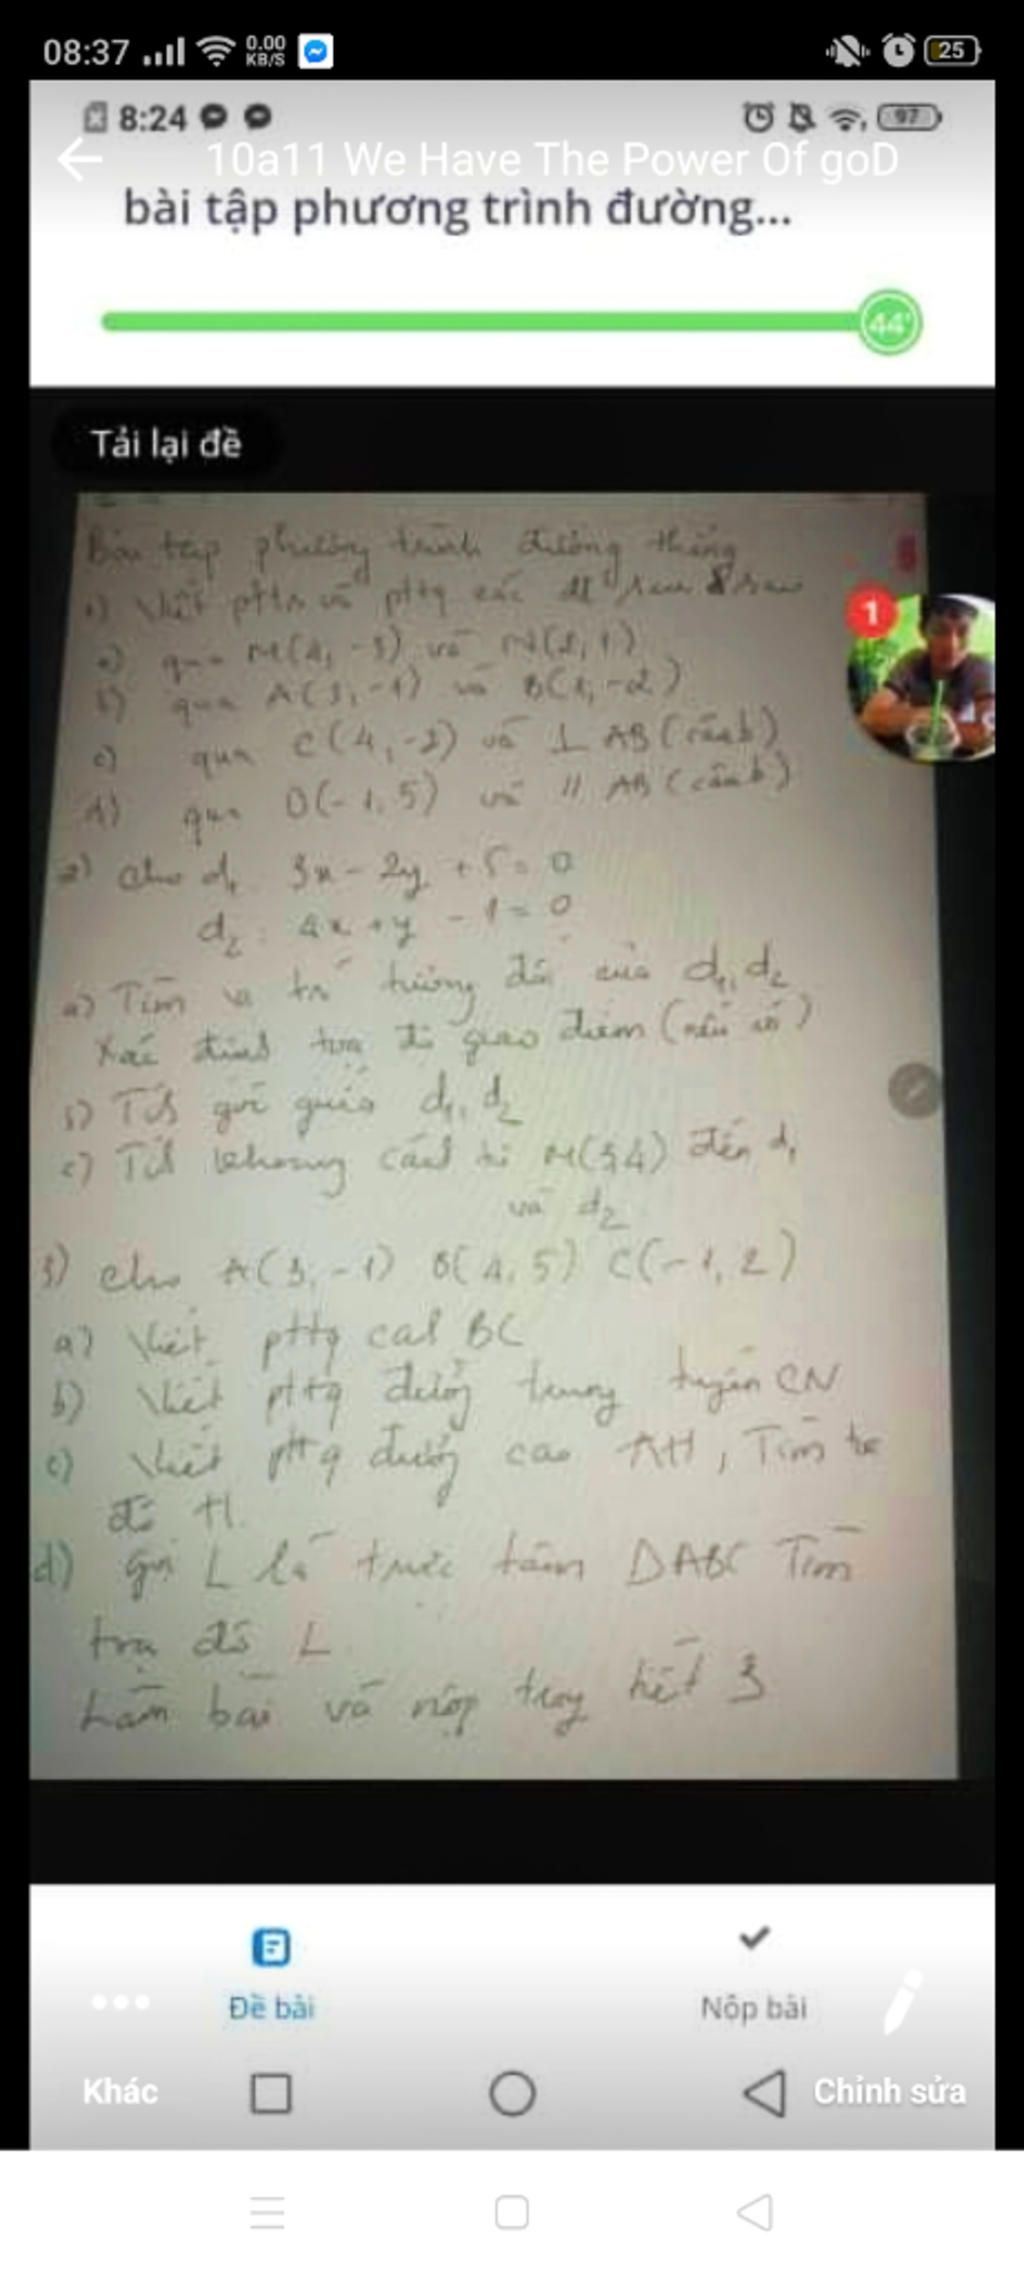 08:37 0.00 KB/S 25
8:24 97
10a11 We Have The Power Of goD
bài tập phương trình đường...
44'
Tải lại đề
Bài tập phương trình đường thẳng
1) Viết ptts và pttq các đt sau
1
a) qua và
b) qua A(3,-1) và B(1,-2)
c) qua C(4,-3) và ⊥ AB (câu b)
d) qua D(-1,5) và // AB (câu b)
2) Cho d₁ 3x - 2y + 5 = 0
d₂: 4x + y - 1 = 0
a) Tìm vị trí tương đối của d₁, d₂
Xác định toạ độ giao điểm (nếu có)
b) Tíh góc giữa d₁, d₂
c) Tíh khoảng cách từ đến d₁
và d₂
3) cho A(3,-1) B(4,5) C(-1,2)
a) Viết pttq cạh BC
b) Viết pttq đường trung tuyến CN
c) Viết pttq đường cao AH, Tìm toạ
độ H.
d) gọi L là trực tâm ΔABC Tìm
toạ độ L
Làm bài và nộp trog tiết 3
Đề bài Nộp bài
Khác Chỉnh sửa